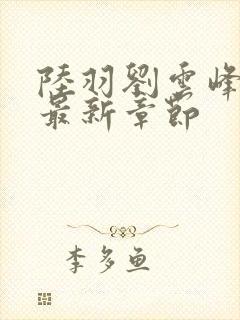 陸羽劉雲峰
最新章節
李多鱼